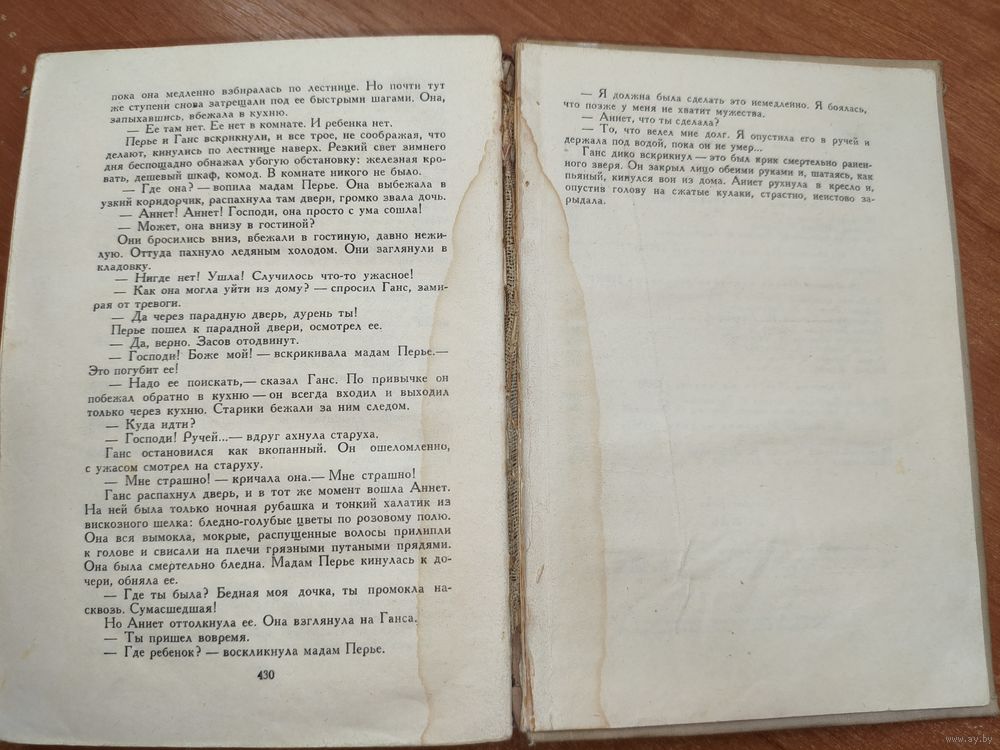 пока она медленно взбиралась по лестнице. Но почти тут
же ступени снова затрещали под ее быстрыми шагами. Она,
запыхавшись, вбежала в кухню.
— Ее там нет. Ее нет в комнате. И ребенка нет.
Перье и Ганс вскрикнули, и все трое, не соображая, что
делают, кинулись по лестнице наверх. Резкий свет зимнего
дня беспощадно обнажал убогую обстановку: железная кро-
вать, дешевый шкаф, комод. В комнате никого не было.
— Где она? — вопила мадам Перье. Она выбежала в
узкий коридорчик, распахнула там двери, громко звала дочь.
— Аннет! Аннет! Господи, она просто с ума сошла!
— Может, она внизу в гостиной?
Они бросились вниз, вбежали в гостиную, давно нежи-
лую. Оттуда пахнуло ледяным холодом. Они заглянули в
кладовку.
— Нигде нет! Ушла! Случилось что-то ужасное!
— Как она могла уйти из дому? — спросил Ганс, зами-
рая от тревоги.
— Да через парадную дверь, дурень ты!
Перье пошел к парадной двери, осмотрел ее.
— Да, верно. Засов отодвинут.
— Господи! Боже мой! — вскрикивала мадам Перье.—
Это погубит ее!
— Надо ее поискать,— сказал Ганс. По привычке он
побежал обратно в кухню — он всегда входил и выходил
только через кухню. Старики бежали за ним следом.
— Куда идти?
— Господи! Ручей...— вдруг ахнула старуха.
Ганс остановился как вкопанный. Он ошеломленно,
с ужасом смотрел на старуху.
— Мне страшно! — кричала она.— Мне страшно!
Ганс распахнул дверь, и в тот же момент вошла Аннет.
На ней была только ночная рубашка и тонкий халатик из
вискозного шелка: бледно-голубые цветы по розовому полю.
Она вся вымокла, мокрые, распущенные волосы прилипли
к голове и свисали на плечи грязными путаными прядями.
Она была смертельно бледна. Мадам Перье кинулась к до-
чери, обняла ее.
— Где ты была? Бедная моя дочка, ты промокла на-
сквозь. Сумасшедшая!
Но Аннет оттолкнула ее. Она взглянула на Ганса.
— Ты пришел вовремя.
— Где ребенок? — воскликнула мадам Перье.
430
— Я должна была сделать это немедленно. Я боялась,
что позже у меня не хватит мужества.
— Аннет, что ты сделала?
— То, что велел мне долг. Я опустила его в ручей и
держала под водой, пока он не умер...
Ганс дико вскрикнул — это был крик смертельно ранен-
ного зверя. Он закрыл лицо обеими руками и, шатаясь, как
пьяный, кинулся вон из дома. Аннет рухнула в кресло и,
опустив голову на сжатые кулаки, страстно, неистово за-
рыдала.
www.ay.by